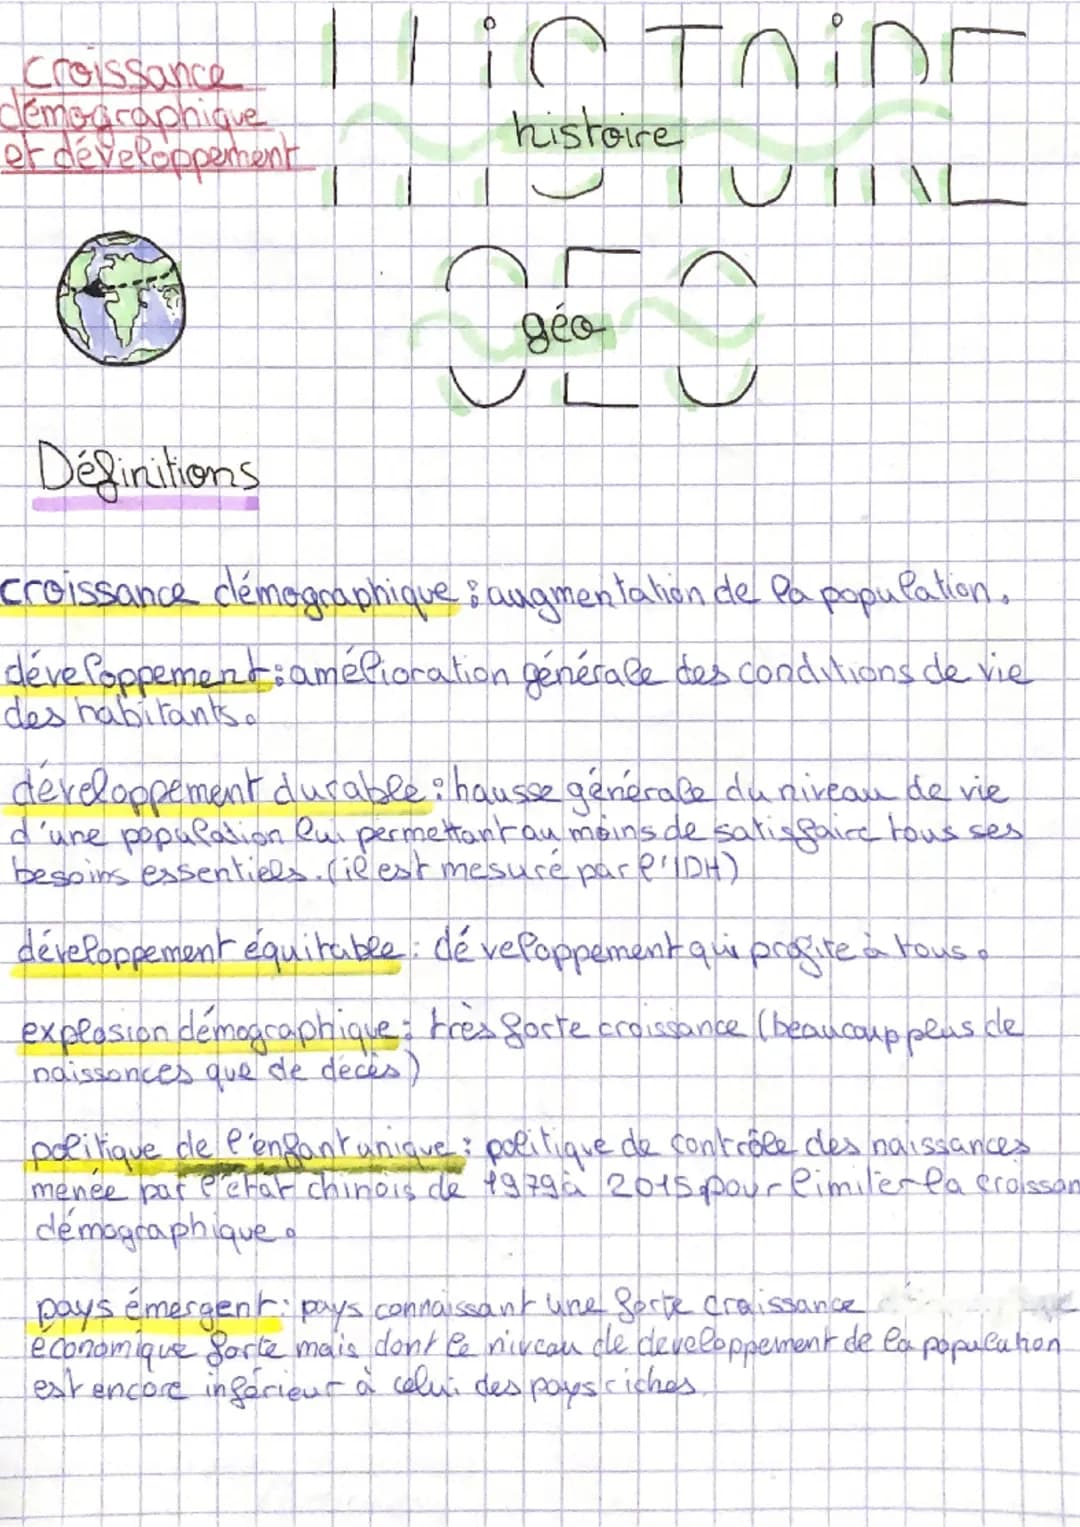 Croissance
démographique
et développement
HiSTOiRE
histoire
GEO
géo
Définitions
croissance démographique : augmentation de la population.
développement : amélioration générale des conditions de vie
des habitants.
développement durable : hausse générale du niveau de vie
d'une population lui permettant au moins de satisfaire tous ses
besoins essentiels. (il est mesuré par l'IDH)
développement équitable : développement qui profite à tous.
explosion démographique : très forte croissance (beaucoup plus de
naissances que de décès)
politique de l'enfant unique : politique de contrôle des naissances
menée par l'état chinois de 1979 à 2015 pour limiter la croissan
démographique.
pays émergent : pays connaissant une forte croissance
économique forte mais dont le niveau de developpement de la population
est encore inférieur à celui des pays riches.